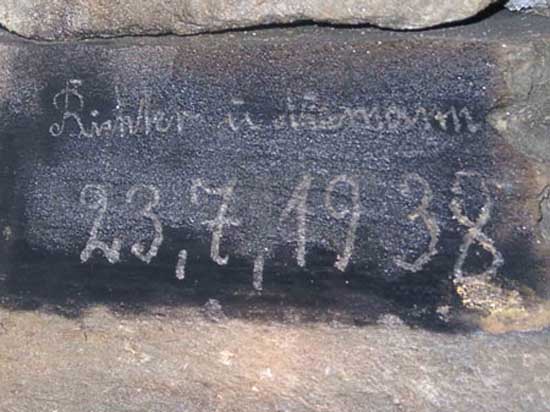 Richter u Niemann
23,7,1938